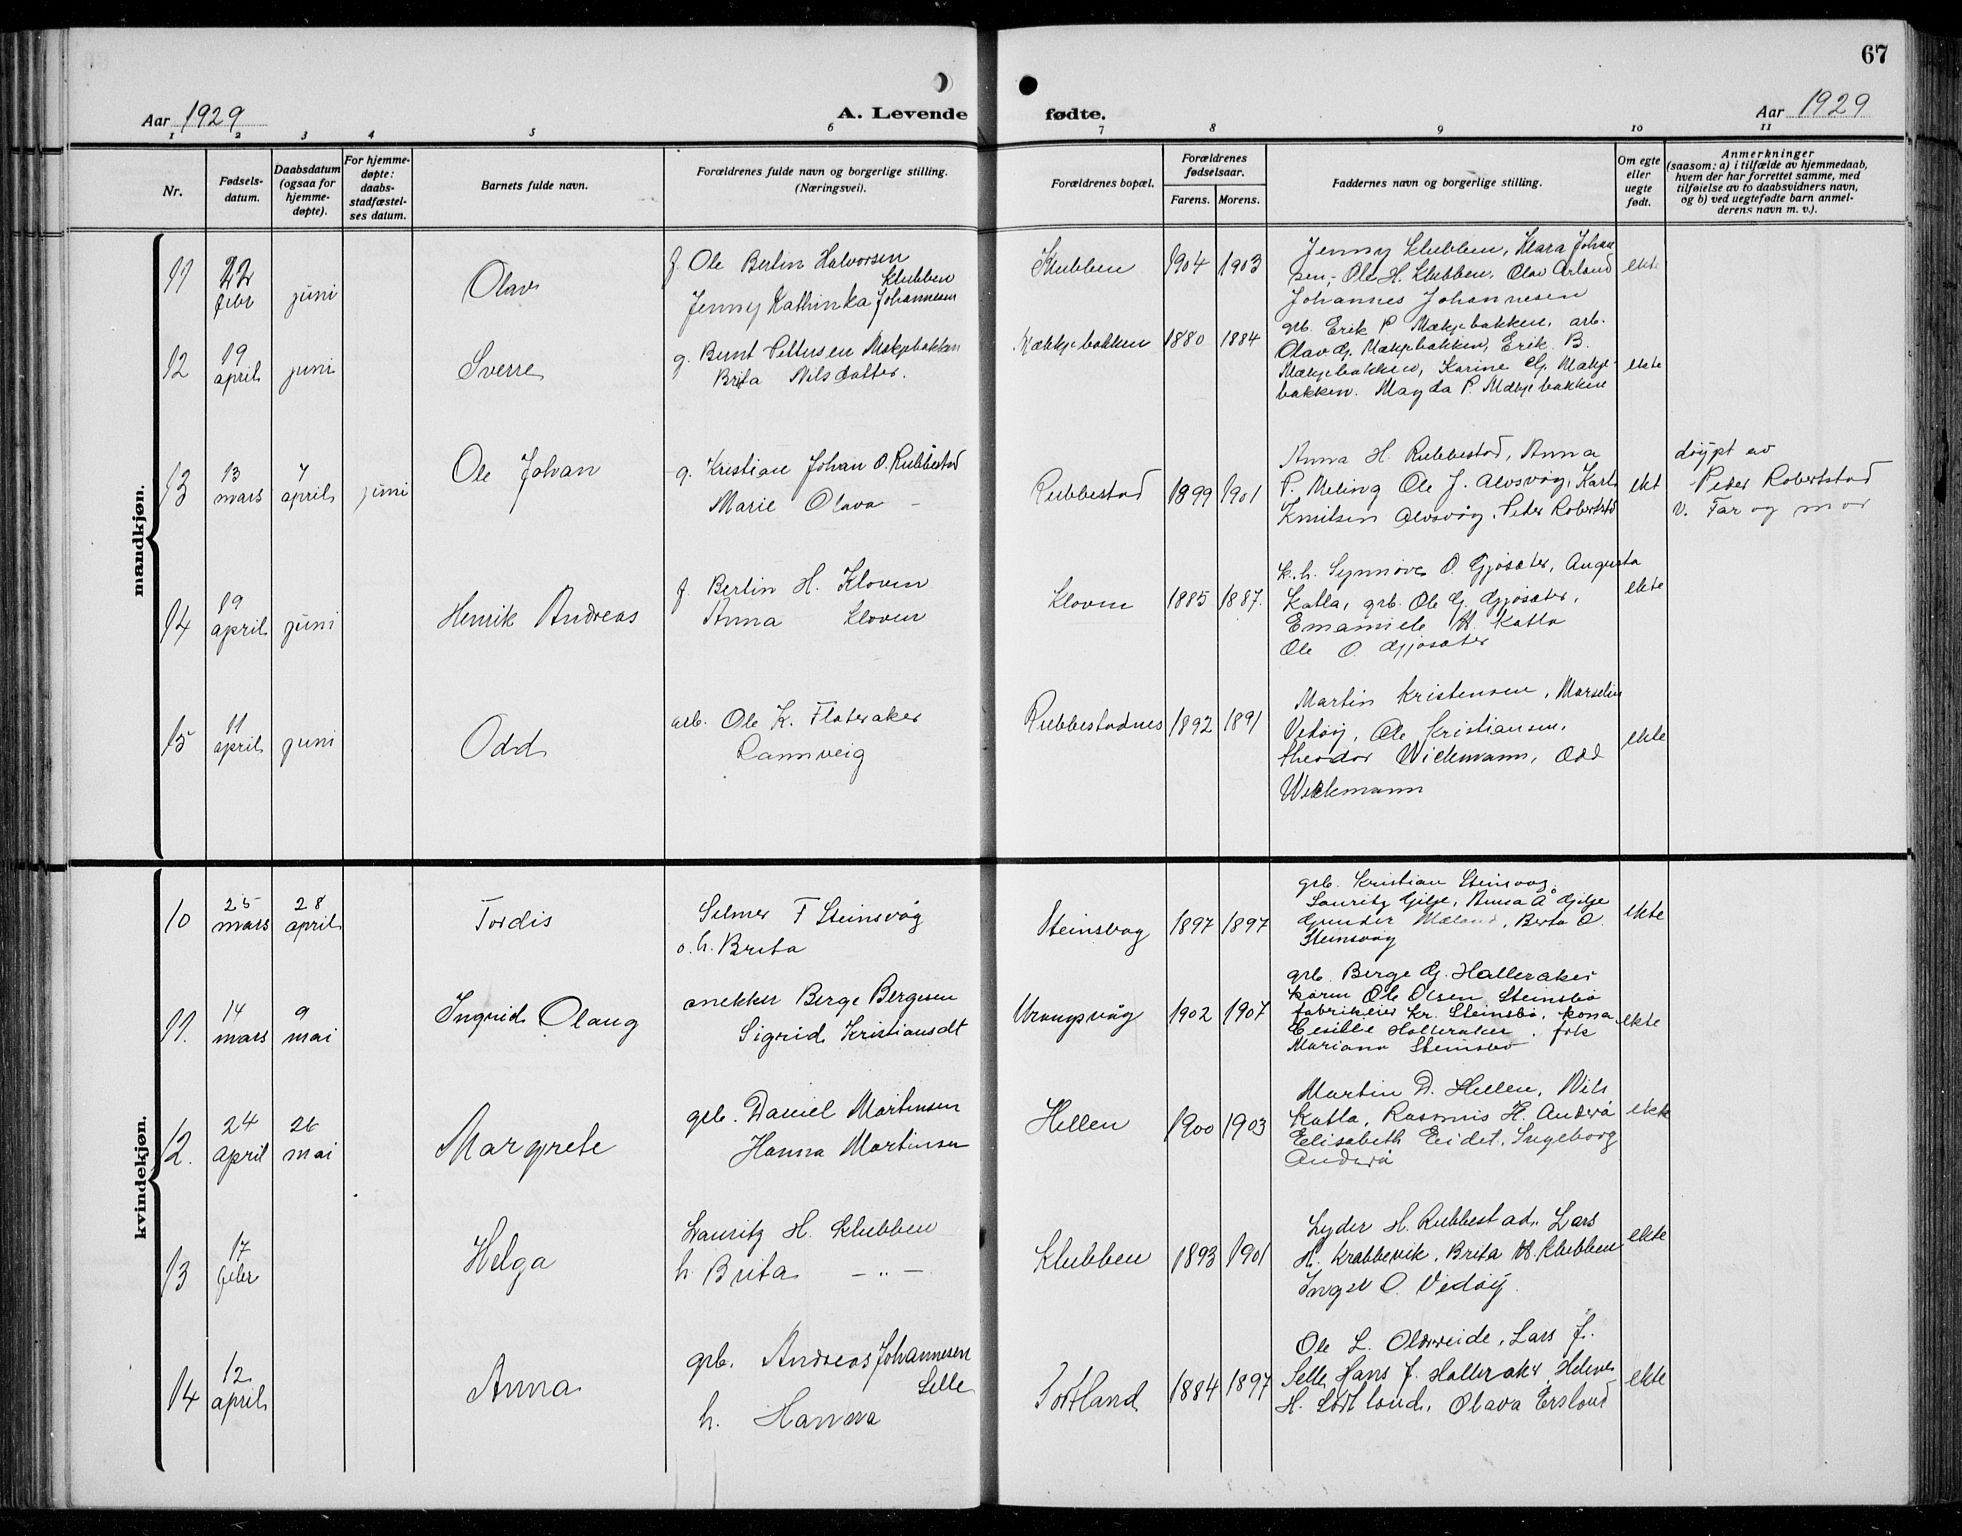 67
Aar 1929
A. Levende fødte.
Aar 1929
1 2 3 4 5 6 7 8 9 10 11
Nr.
Fødsels-
datum.
Daabsdatum
(ogsaa for
hjemme-
døpte).
For hjemme-
døpte:
daabs-
stadfæstel-
ses datum.
Barnets fulde navn.
Forældrenes fulde navn og borgerlige stilling.
(Næringsvei).
Forældrenes bopæl.
Forældrenes
fødselsaar.
Farens. Morens.
Faddernes navn og borgerlige stilling.
Om egte
eller
uegte
født.
Anmerkninger
(saasom: a) i tilfælde av hjemmedaab,
hvem der har forrettet samme, med
tilføielse av to daabsvidners navn,
og b) ved uegtefødte barn anmel-
derens navn m. v.).
mandkjøn.
11
22
febr
juni
Olav
f Ole Bertin Halvorsen
Klubben
Jenny Kathinka Johannesen
Klubben
1904 1903
Jenny Klubben, Klara Johan
sen, Ole H. Klubben, Olav Arland
Johannes Johannesen
ekte
12
19
april
juni
Sverre
g. Bernt Pettersen Mækjebakken
Brita Nilsdatter.
Mækkjebakken
1880 1884
grb. Erik P. Mækjebakken, arb.
Olav G. Mækjebakken, Erik B.
Mækjebakken, Karine G. Mækje-
bakken. Magda P. Mækjebakken
ekte
13
13
mars
7
april
juni
Ole Johan
g. Kristian Johan O. Rubbestad
Marie Olava -
Rubbestad
1899 1901
Anna H. Rubbestad, Anna
P. Meling Ole J. Alvsvåg, Karl
Knutsen Alvsvåg, Peder Robertstad
ekt
døypt av
Peder Robertstad
v. Far og mor
14
19
april
juni
Henrik Andreas
f. Bertin H. Kloven
Anna Kloven
Kloven
1885 1887.
k.h. Synnøve O. Gjøsæter, Augusta
Katla, grb. Ole G. Gjøsæter,
H. Katla
Ole O. Gjøsæter
ekte
15
11
april
juni
Odd
arb. Ole K. Flateraker
Rannveig
Rubbestadnes
1892 1891
Martin Kristensen, Marselie
Vedøy, Ole Kristiansen,
Theodor Wickmann, Odd
Wickmann
ekte
kvindekjøn.
10
25
mars
28
april
Tordis
Selmer F Steinsvåg
o. h. Brita
Steinsvag
1897 1897
grb. Kristian Steinsvåg
Lauritz Gilje, Anna Å Gilje
Gunder Mæland, Berta O.
Steinsvåg
ekte
11.
14
mars
9
mai
Ingrid Olaug
snekker Berge Bergesen
Sigrid Kristiansdt
Urangsvåg
1902 1907
grb. Berge G. Hallaraker
Ole Olsen Steinsbø
fabrikeier Kr. Steinsbø, kona
Hallaraker, frk
Mariana Steinsbø
ekte
12.
24
april
26
mai
Margrete
grb. Daniel Martinsen
Hanna Martinsen
Hellen
1900 1903
Martin D. Hellen, Nils
Katla, Rasmus H. Anderå
Elisabeth Eidet, Ingeborg
Anderå
ekte
13
17
febr
Helga
Lauritz H. Klubben
h. Brita - " -
Klubben
1893 1901
Lyder H. Rubbestad, Lars
H. Krabbevik, Brita H. Klubben
Inger O. Vedøy.
ekte
14
12
april
Anna
grb. Andreas Johannesen
Selle
h. Hanna
Sortland
1884 1897
Ole L. Olderreide, Lars J.
Selle Hans J. Hallaraker, Helene
H. Sortland, Olava Ersland
ekte